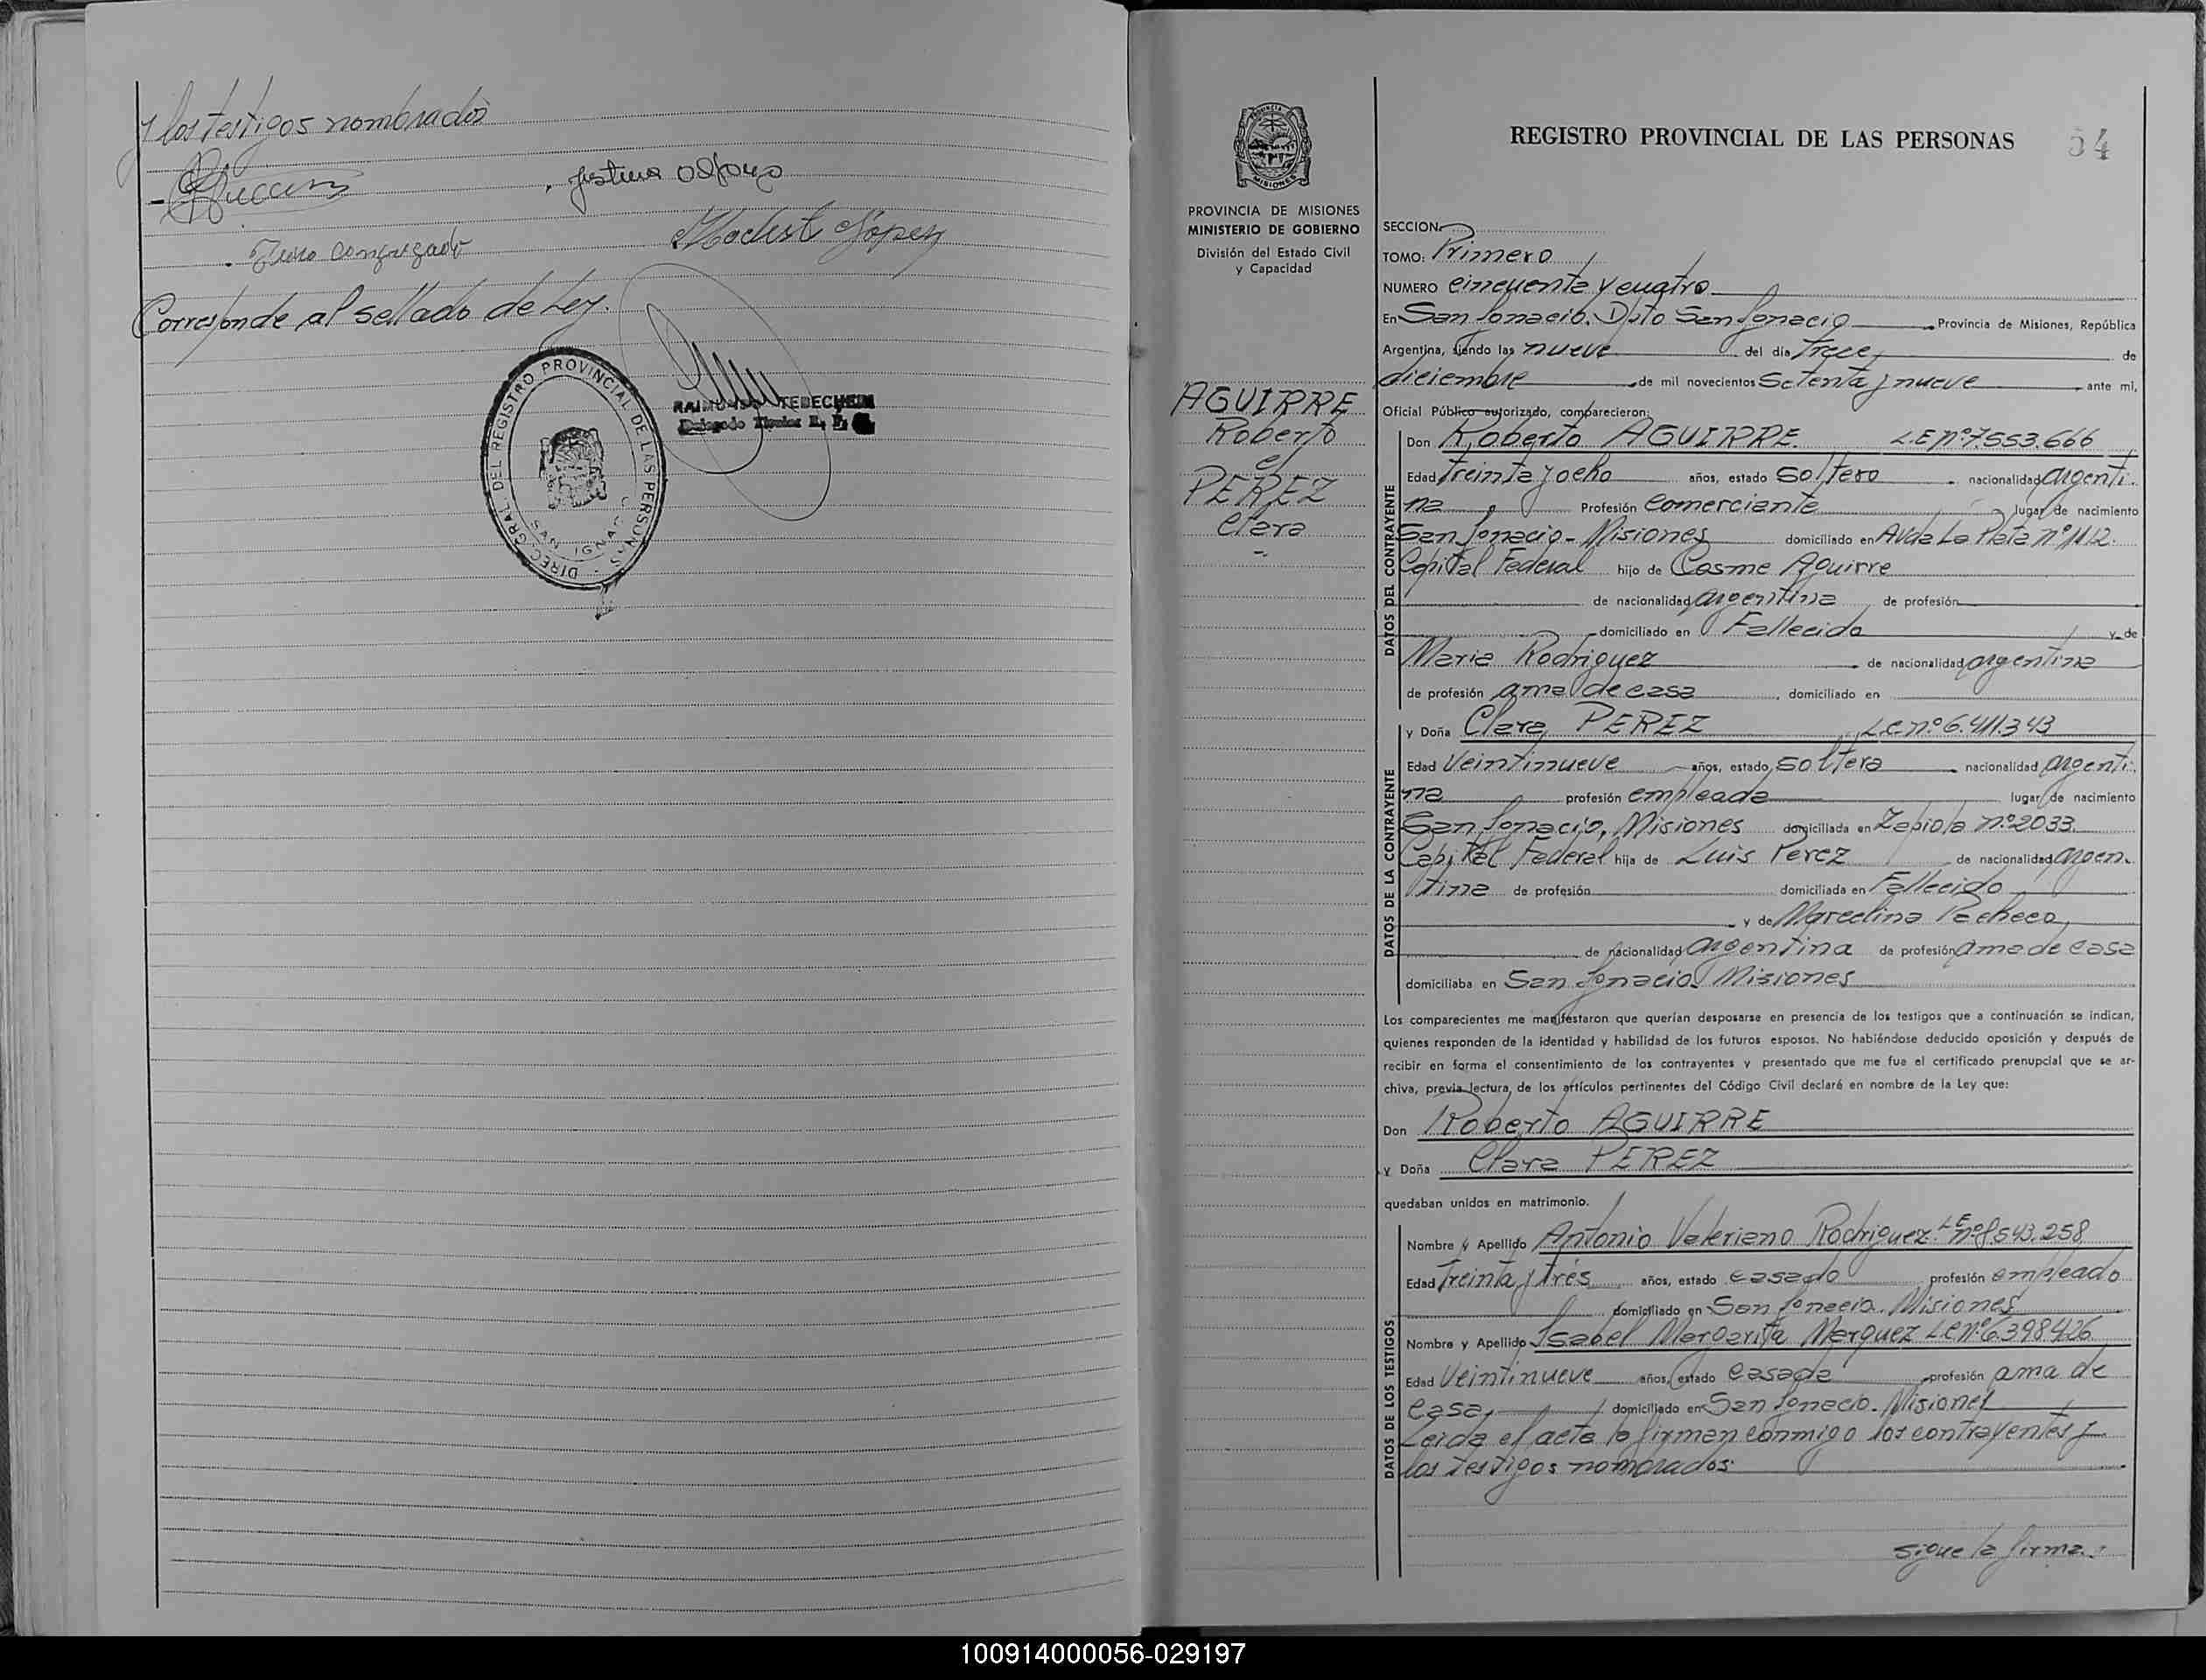 y los testigos nombrados
Justina Alfonzo
Modesto López
Corresponde al sellado de Ley.
DIREC. GRAL. DEL REGISTRO PROVINCIAL DE LAS PERSONAS
SAN IGNACIO
RAIMUNDO TEBECHERI
Delegado Titular R. P.
PROVINCIA
MISIONES
PROVINCIA DE MISIONES
MINISTERIO DE GOBIERNO
División del Estado Civil
y Capacidad
AGUIRRE
Roberto
c/
PEREZ
Clara
REGISTRO PROVINCIAL DE LAS PERSONAS 54
SECCION
TOMO: Primero
NUMERO cincuenta y cuatro
En San Ignacio. Dpto San Ignacio Provincia de Misiones, República
Argentina, siendo las nueve del día trece de
diciembre de mil novecientos Setenta y nueve ante mi,
Oficial Público autorizado, comparecieron:
DATOS DEL CONTRAYENTE
Don Roberto AGUIRRE L.E nº 7.553.666
Edad treinta y ocho años, estado soltero nacionalidad argenti-
na Profesión comerciante lugar de nacimiento
San Ignacio - Misiones domiciliado en Avda La Plata nº 112.
Capital Federal hijo de Cosme Aguirre
de nacionalidad argentina de profesión
domiciliado en Fallecido y de
Maria Rodriguez de nacionalidad argentina
de profesión ama de casa, domiciliado en
DATOS DE LA CONTRAYENTE
y Doña Clara PEREZ L.C nº 6.411.343
Edad Veintinueve años, estado soltera nacionalidad argenti-
na profesión empleada lugar de nacimiento
San Ignacio, Misiones domiciliada en Zapiola nº 2033
Capital Federal hija de Luis Perez de nacionalidad argen-
tina de profesión domiciliada en Fallecido
y de Marcelina Pacheco
de nacionalidad argentina de profesión ama de casa
domiciliaba en San Ignacio Misiones
Los comparecientes me manifestaron que querían desposarse en presencia de los testigos que a continuación se indican,
quienes responden de la identidad y habilidad de los futuros esposos. No habiéndose deducido oposición y después de
recibir en forma el consentimiento de los contrayentes y presentado que me fue el certificado prenupcial que se ar-
chiva, previa lectura de los artículos pertinentes del Código Civil declaré en nombre de la Ley que:
Don Roberto AGUIRRE
y Doña Clara PEREZ
quedaban unidos en matrimonio.
DATOS DE LOS TESTIGOS
Nombre y Apellido Antonio Valeriano Rodriguez L.E nº 8.543.258
Edad treinta y trés años, estado casado profesión empleado
domiciliado en San Ignacio. Misiones
Nombre y Apellido Isabel Margarita Marquez L.C nº 6.398.426
Edad Veintinueve años, estado casada profesión ama de
casa, domiciliado en San Ignacio. Misiones
Leida el acta la firman conmigo los contrayentes y
los testigos nombrados.
sigue la firma.:
100914000056-029197